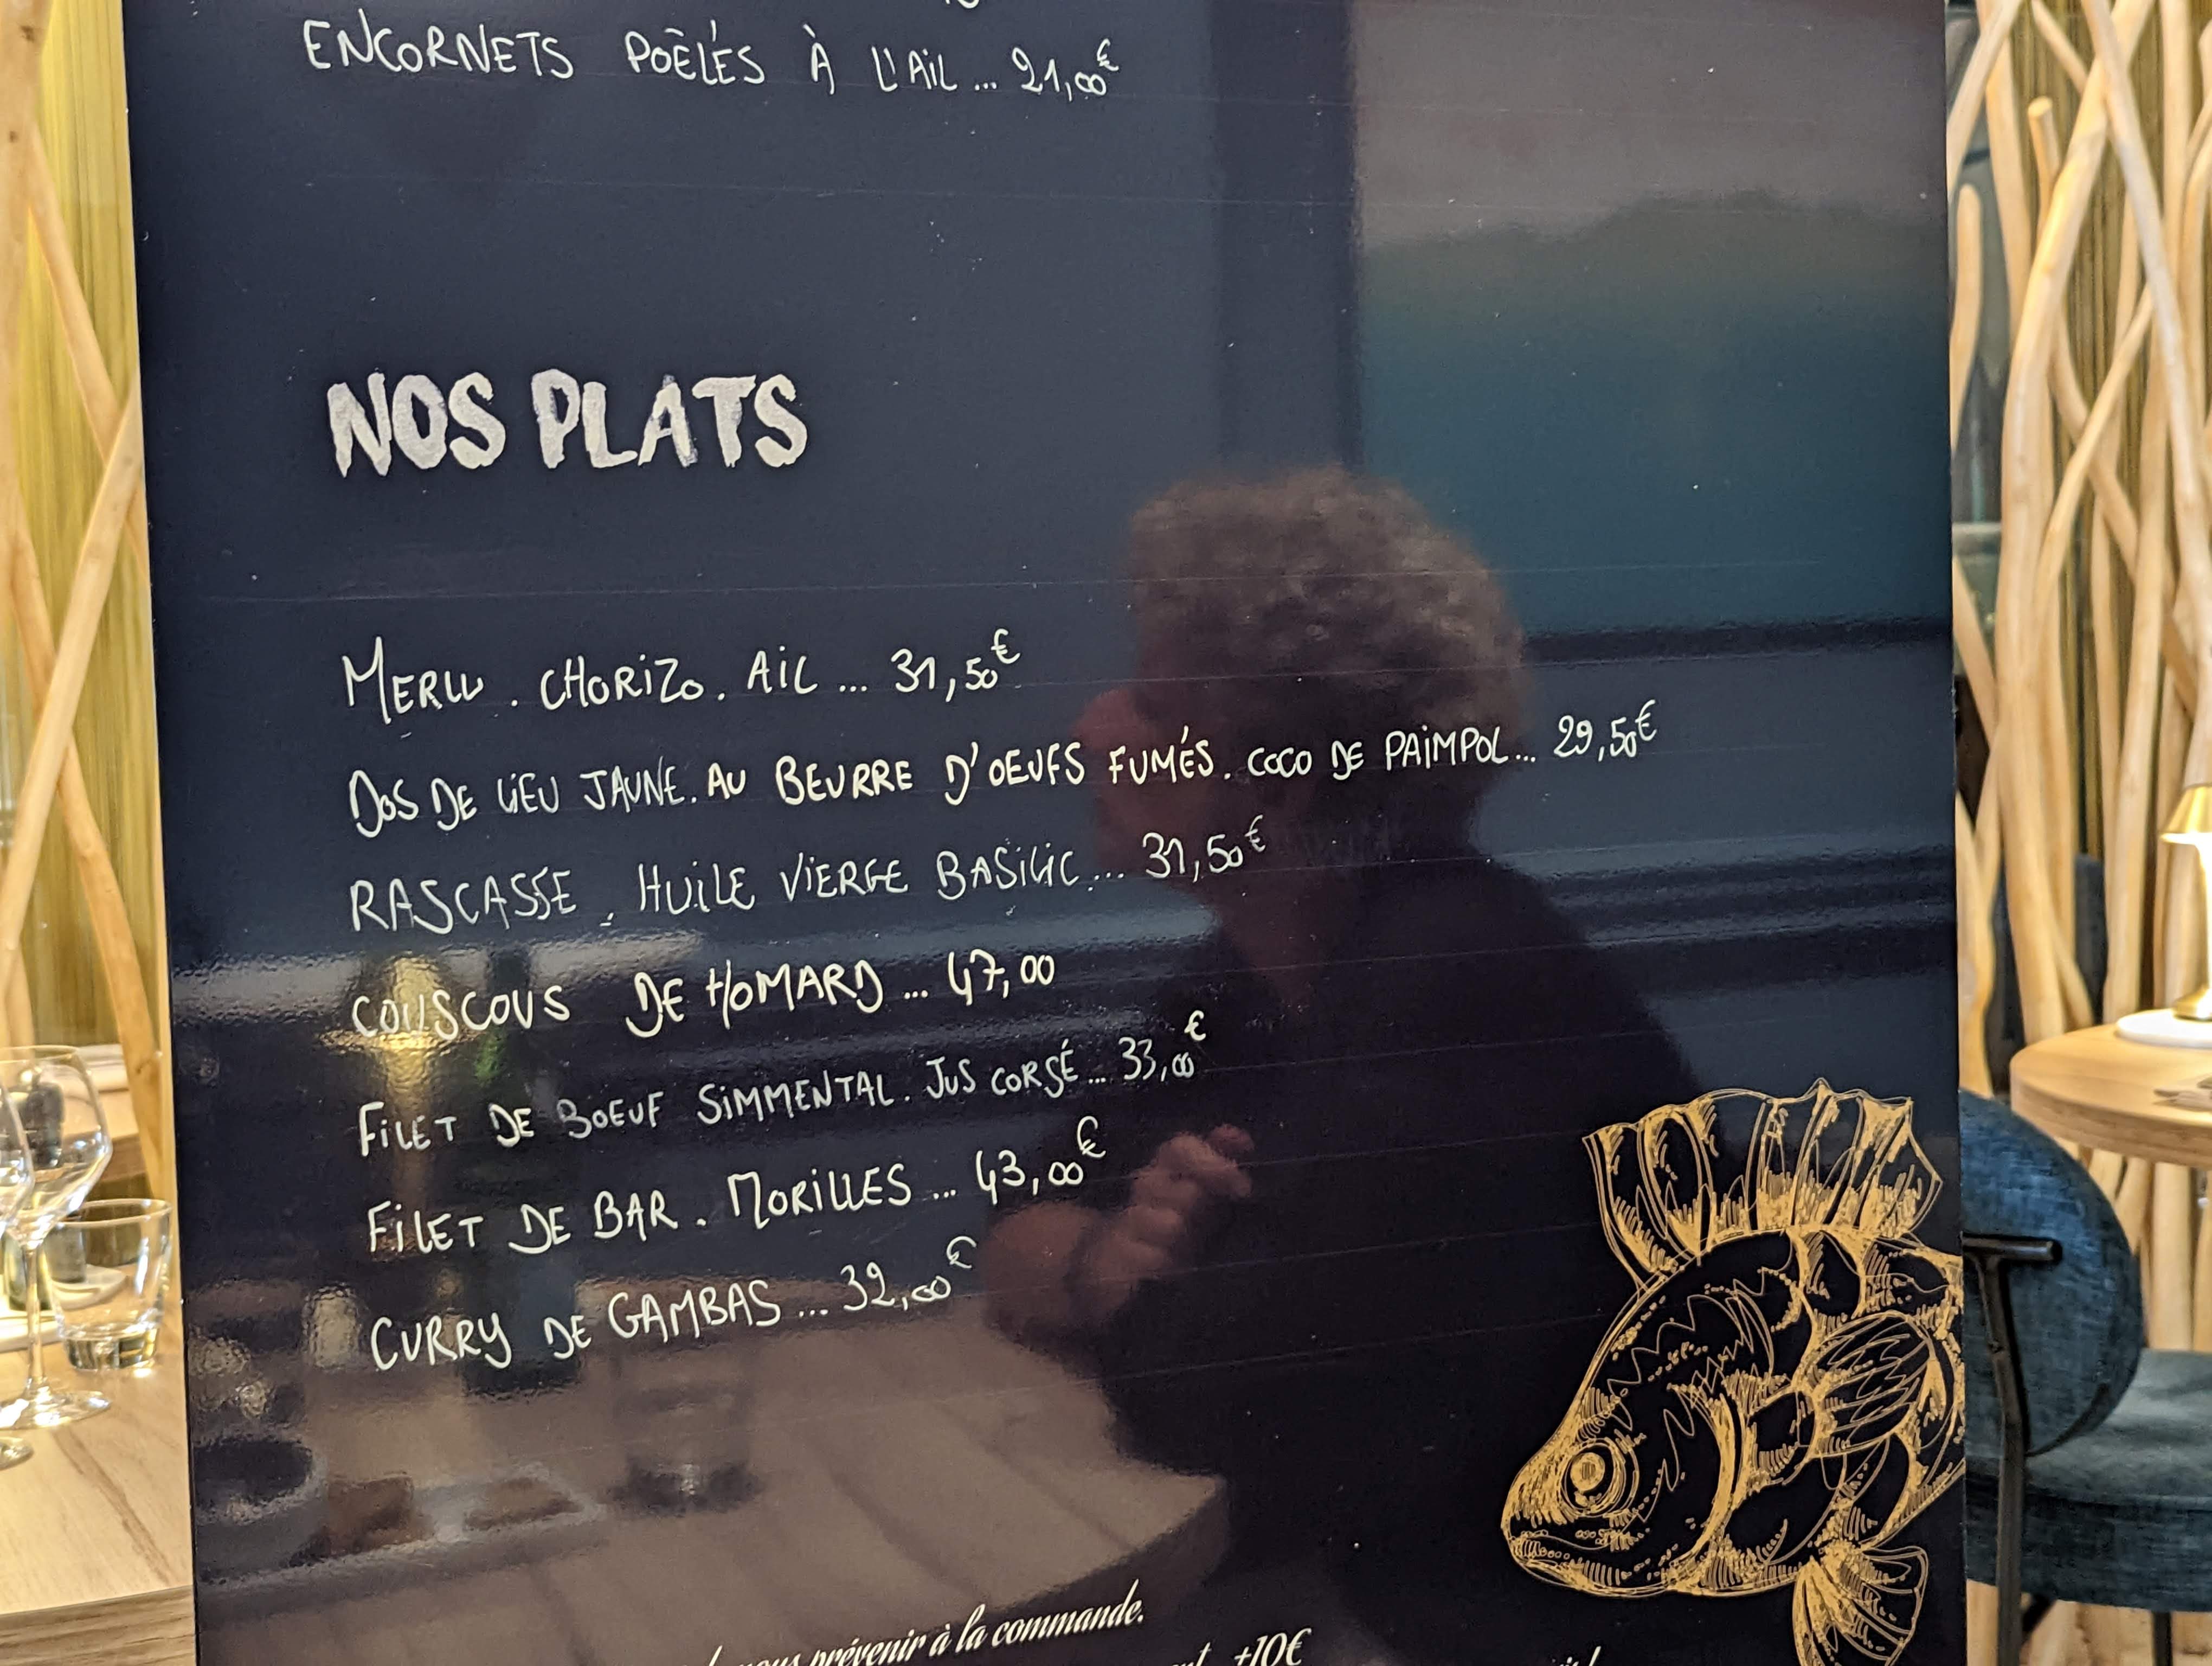 ENCORNETS POÊLÉS À L'AIL ... 21,00€
NOS PLATS
MERLU . CHORIZO . AIL ... 31,50€
DOS DE LIEU JAUNE . AU BEURRE D'OEUFS FUMÉS . COCO DE PAIMPOL ... 29,50€
RASCASSE . HUILE VIERGE BASILIC ... 31,50€
COUSCOUS DE HOMARD ... 47,00
FILET DE BOEUF SIMMENTAL . JUS CORSÉ ... 33,00€
FILET DE BAR . MORILLES ... 43,00€
CURRY DE GAMBAS ... 32,00€
nous prévenir à la commande.
+10€